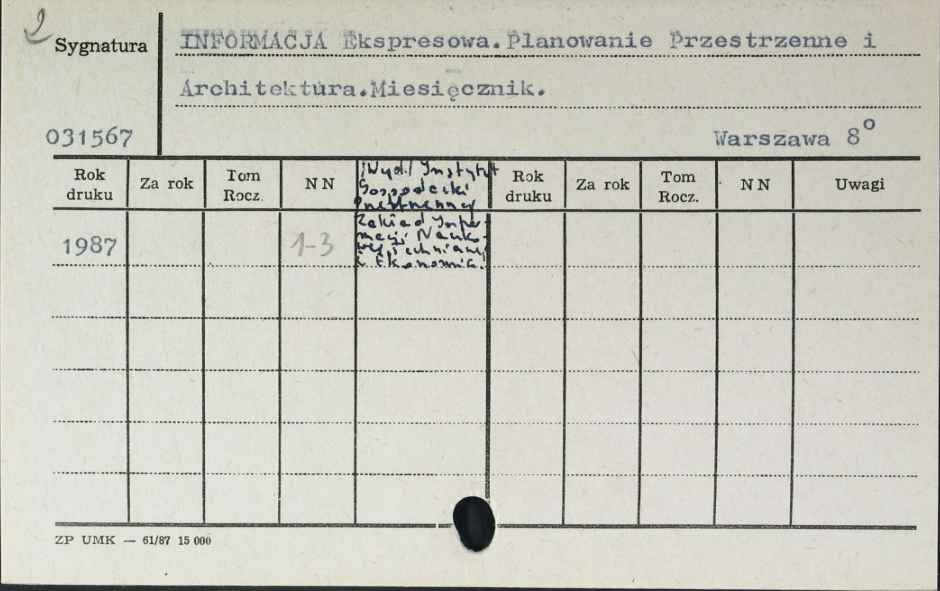 2
Sygnatura
INFORMACJA Ekspresowa.Planowanie Przestrzenne i
Architektura.Miesięcznik.
031567
Warszawa 8o
Rok druku
Za rok
Tom Rocz.
NN
/Wyd./ Instytut
Gospodarki
Przestrzennej
Zakład Infor-
macji Nauk.
i Ekonomic.
Rok druku
Za rok
Tom Rocz.
NN
Uwagi
1987
1-3
ZP UMK — 61/87 15 000